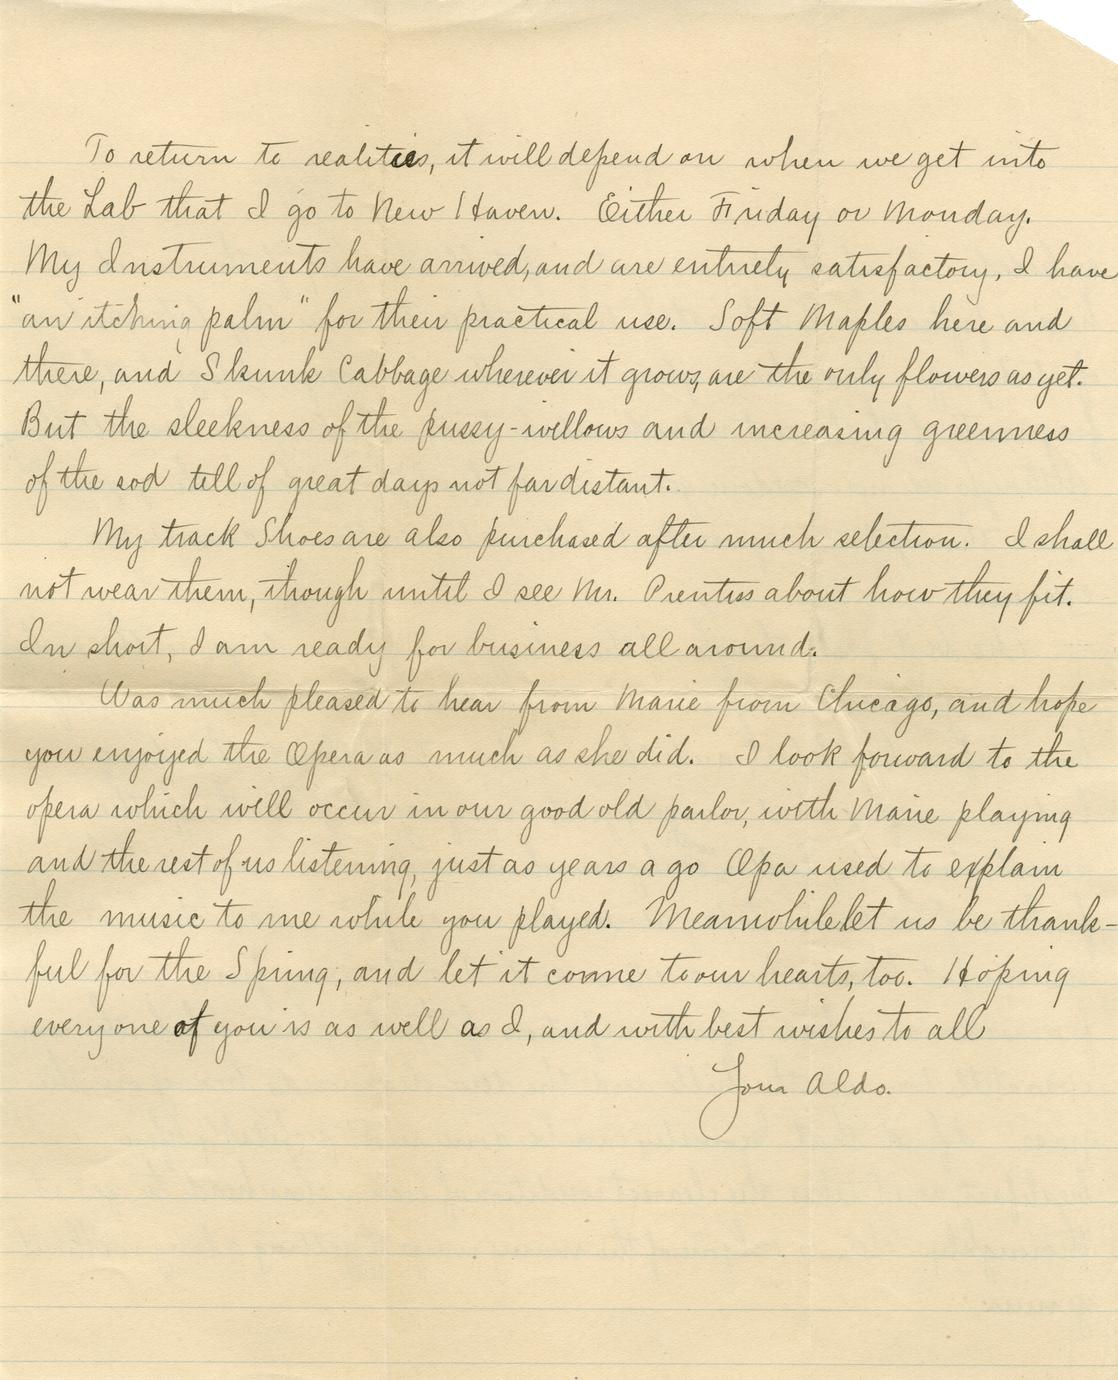 To return to realities, it will depend on when we get into
the Lab that I go to New Haven. Either Friday or Monday.
My Instruments have arrived, and are entirely satisfactory, I have
"an itching palm" for their practical use. Soft Maples here and
there, and Skunk Cabbage wherever it grows, are the only flowers as yet.
But the sleekness of the pussy-willows and increasing greenness
of the sod tell of great days not far distant.
My track Shoes are also purchased after much selection. I shall
not wear them, though until I see Mr. Prentiss about how they fit.
In short, I am ready for business all around.
Was much pleased to hear from Marie from Chicago, and hope
you enjoyed the Opera as much as she did. I look forward to the
opera which will occur in our good old parlor, with Marie playing
and the rest of us listening, just as years ago Opa used to explain
the music to me while you played. Meanwhile let us be thank-
ful for the Spring, and let it come to our hearts, too. Hoping
everyone of you is as well as I, and with best wishes to all
Your Aldo.